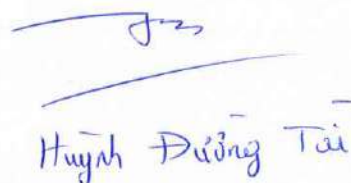 Huỳnh Đường Tài